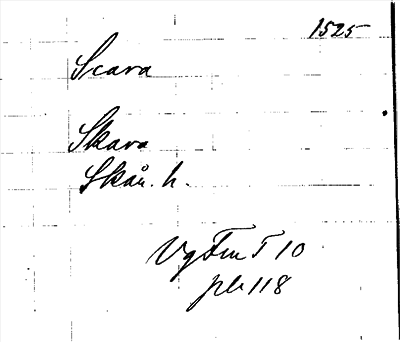 1525
Scara
Skara
Skån. h.
Vg Fm T 10
pl 118